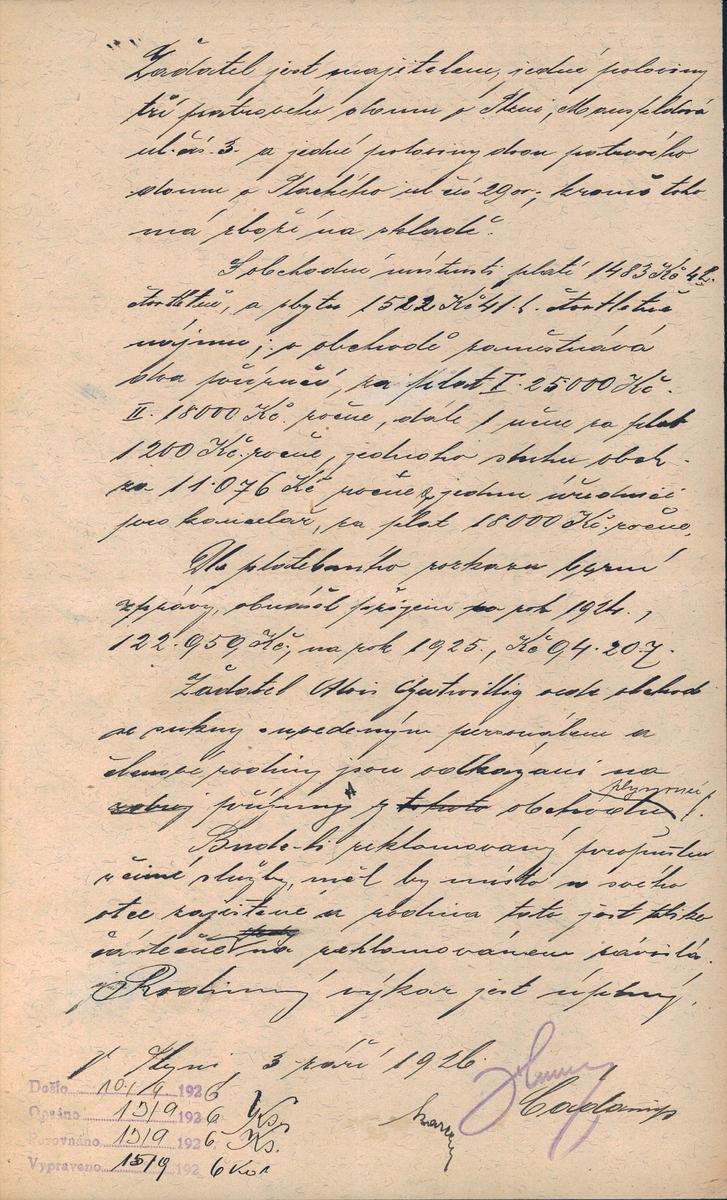 Žadatel jest majitelem jedné poloviny
tří patrového domu v Plzni, Mansfeldova
ul. čís. 3. a jedné poloviny dvou patrového
domu v Plachého ul čís 29, kromě toho
má zboží na skladě.
Z obchodní místnosti platí 1483 Kč 42
čtvrtletně, a z bytu 1522 Kč 41 h. čtvrtletně
nájmu; v obchodě zaměstnává
dva příručí, za plat I. 25000 Kč.
II. 18000 Kč. ročně, dále 1 učně za plat
1200 Kč. ročně, jednoho sluhu obch.
za 11.076 Kč ročně a jednu úřednici
pro kancelář, za plat 18000 Kč. ročně.
Dle platebního rozkazu berní
zprávy, obnášel příjem na rok 1924.,
122.959 Kč, na rok 1925., Kč 94.207.
Žadatel Alois Gutwillig vede obchod
se sukny s uvedeným personálem a
členové rodiny jsou odkázáni na
příjmy z obchodu plynoucí.
Bude-li reklamovaný propuštěn
z činné služby, měl by místo u svého
otce zajištěné a rodina tato jest toliko
částečně na reklamovaném závislá.
Rodinný výkaz jest úplný.
V Plzni, 3. září 1926.
Došlo 10/9 1926
Opsáno 13/9 1926
Porovnáno 13/9 1926 Ks.
Vypraveno 15/9 1926